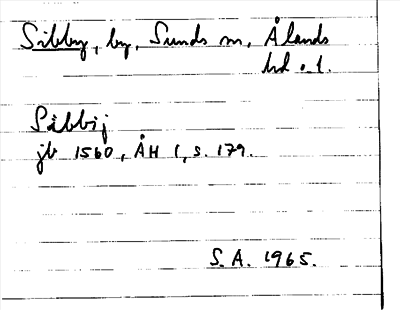 Sibby, by, Sunds sn, Ålands
hd o. l.
Sibbij
jb 1560, ÅH 1, s. 179.
S. A. 1965.